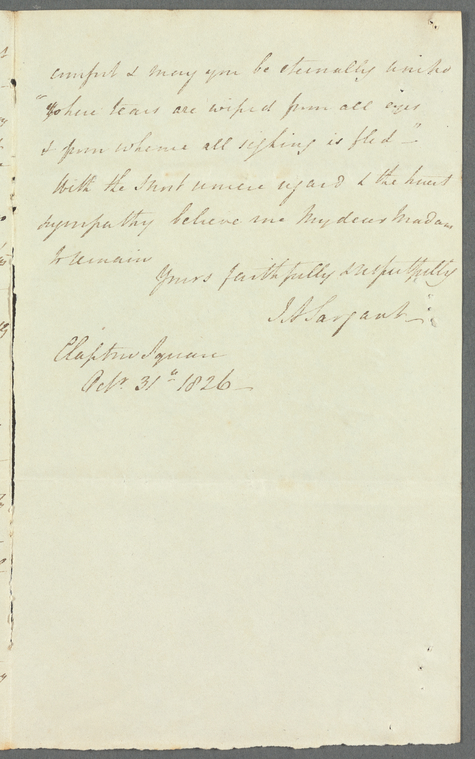 comfort & may you be eternally united
"where tears are wiped from all eyes
& from whence all sighing is fled –"
With the most sincere regard & the truest
sympathy believe me My dear Madam
to remain
Yours faithfully & respectfully
J A Sargant
Clapton Square
Octr. 31st 1826